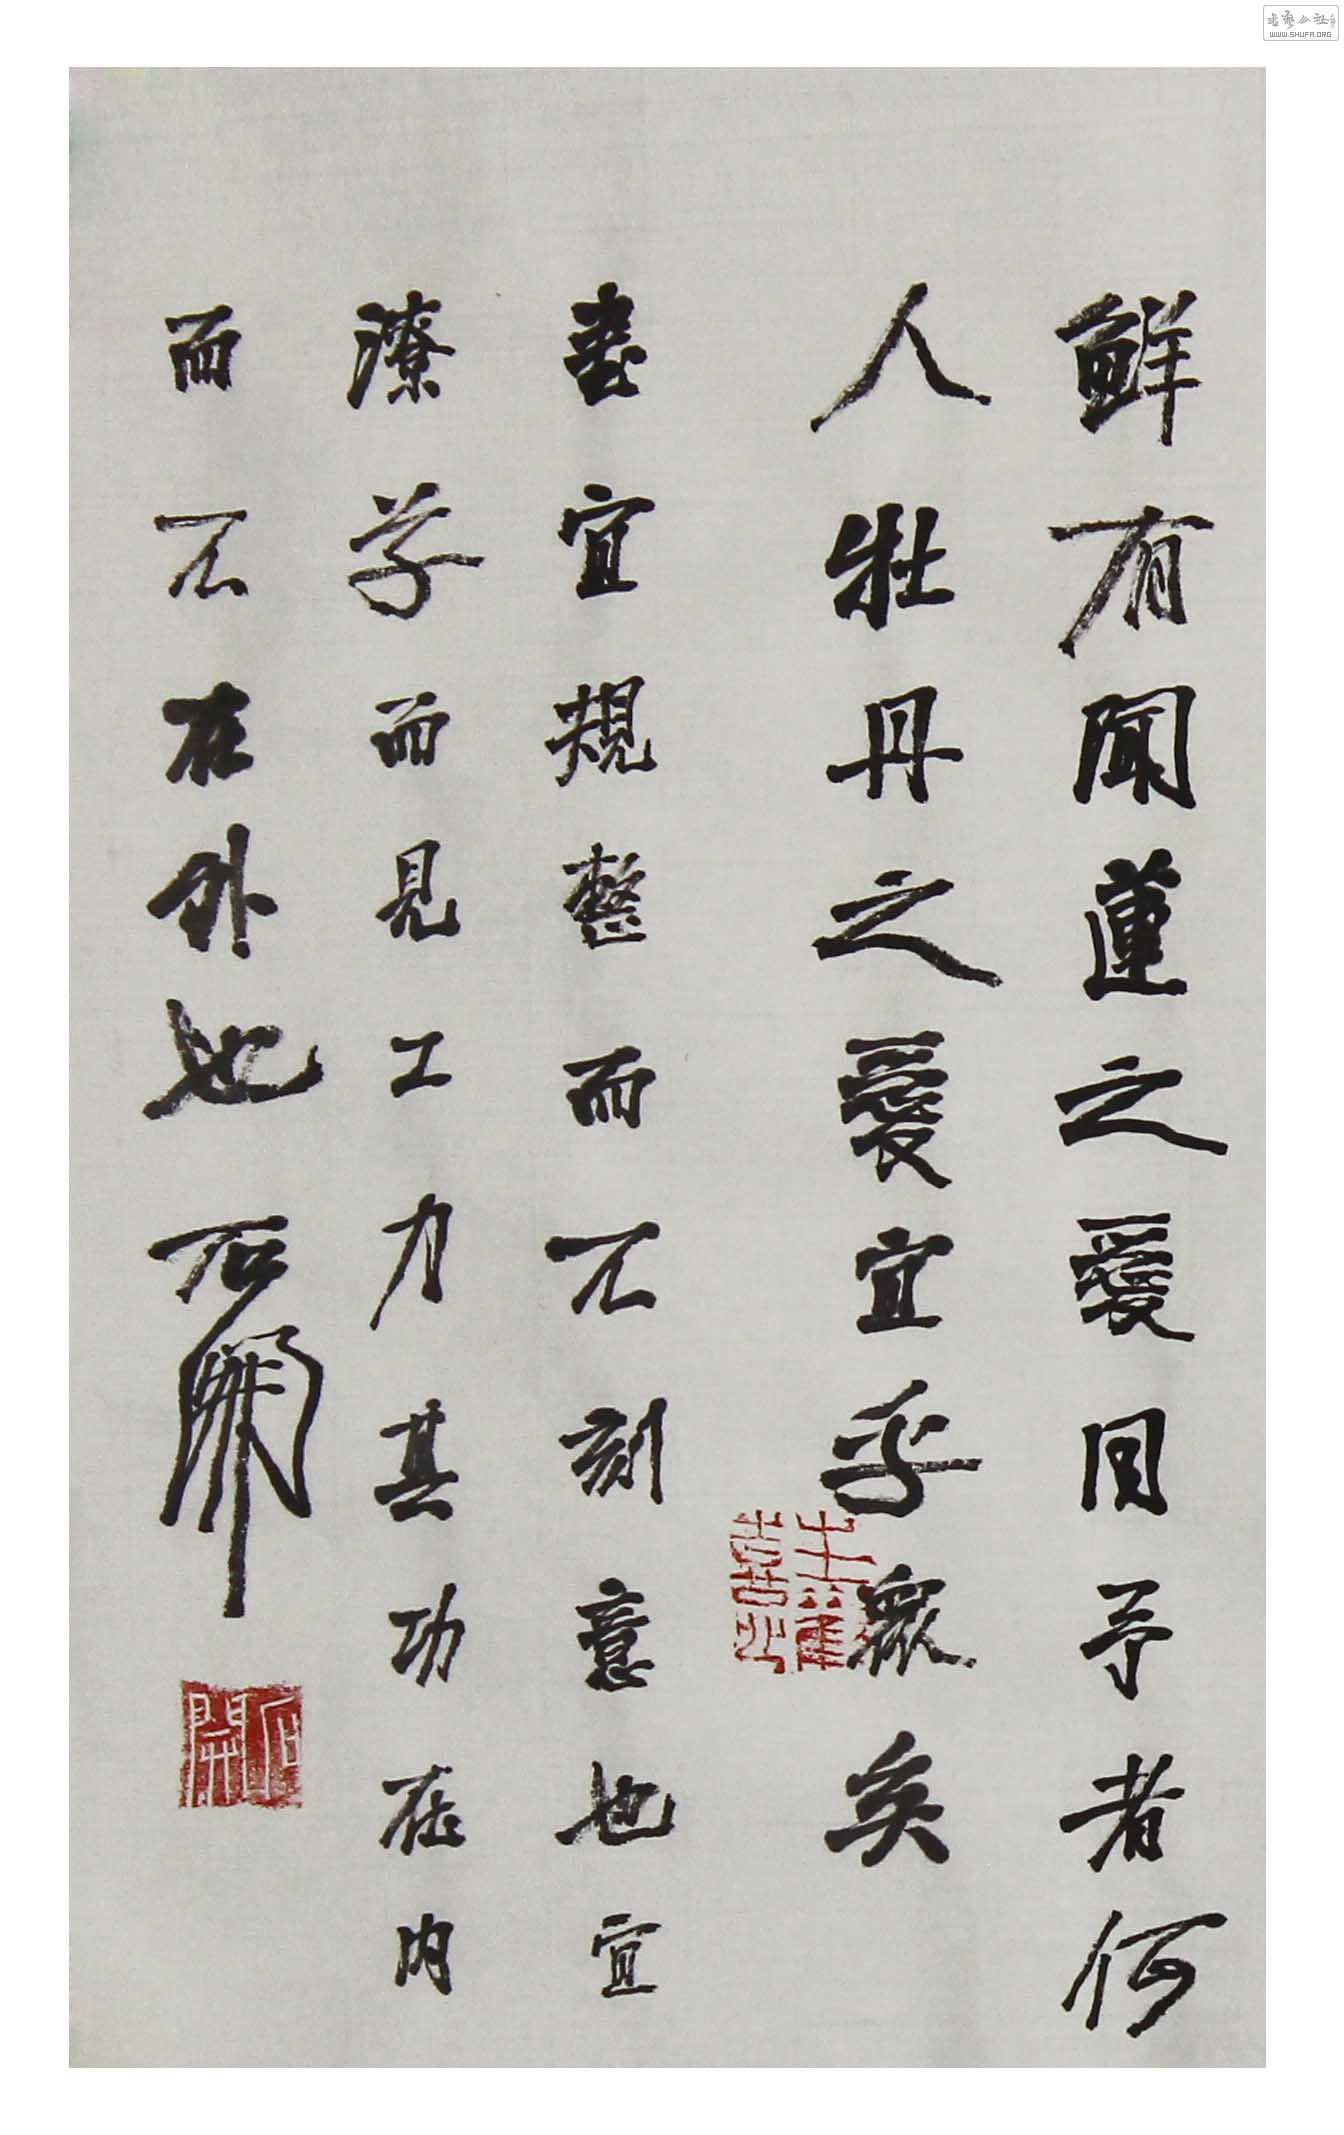 鮮有聞蓮之愛同予者何
人牡丹之愛宜乎眾矣
書宜規整而不刻意也宜
潦草而見工力其功在内
而不在外也 石開
石開
书艺公社
WWW.SHUFA.ORG